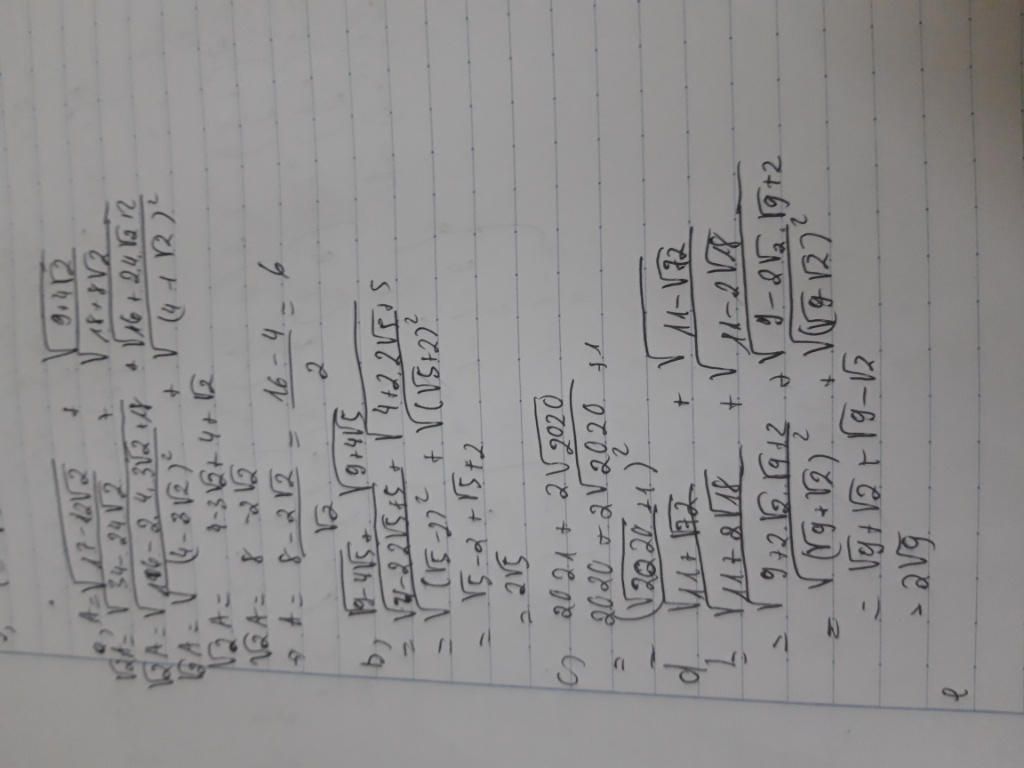 a, A = √(17-12√2) + √(9+4√2)
√2A = √(34-24√2) + √(18+8√2)
√2A = √(16-2.4.3√2+18) + √(16+24√2+2)
√2A = √(4-3√2)² + √(4+√2)²
√2A = 4-3√2+4+√2
√2A = 8-2√2
→ A = (8-2√2)/√2 = (16-4)/2 = 6
b, √(9-4√5) + √(9+4√5)
= √(4-2.2√5+5) + √(4+2.2√5+5)
= √(√5-2)² + √(√5+2)²
= √5-2+√5+2
= 2√5
c, 2021+2√2020
= 2020+2√2020+1
= (√2020+1)²
d, √(11+√72) + √(11-√72)
= √(11+2√18) + √(11-2√18)
= √(9+2√2.√9+2) + √(9-2√2.√9+2)
= √(√9+√2)² + √(√9-√2)²
= √9+√2+√9-√2
= 2√9
e